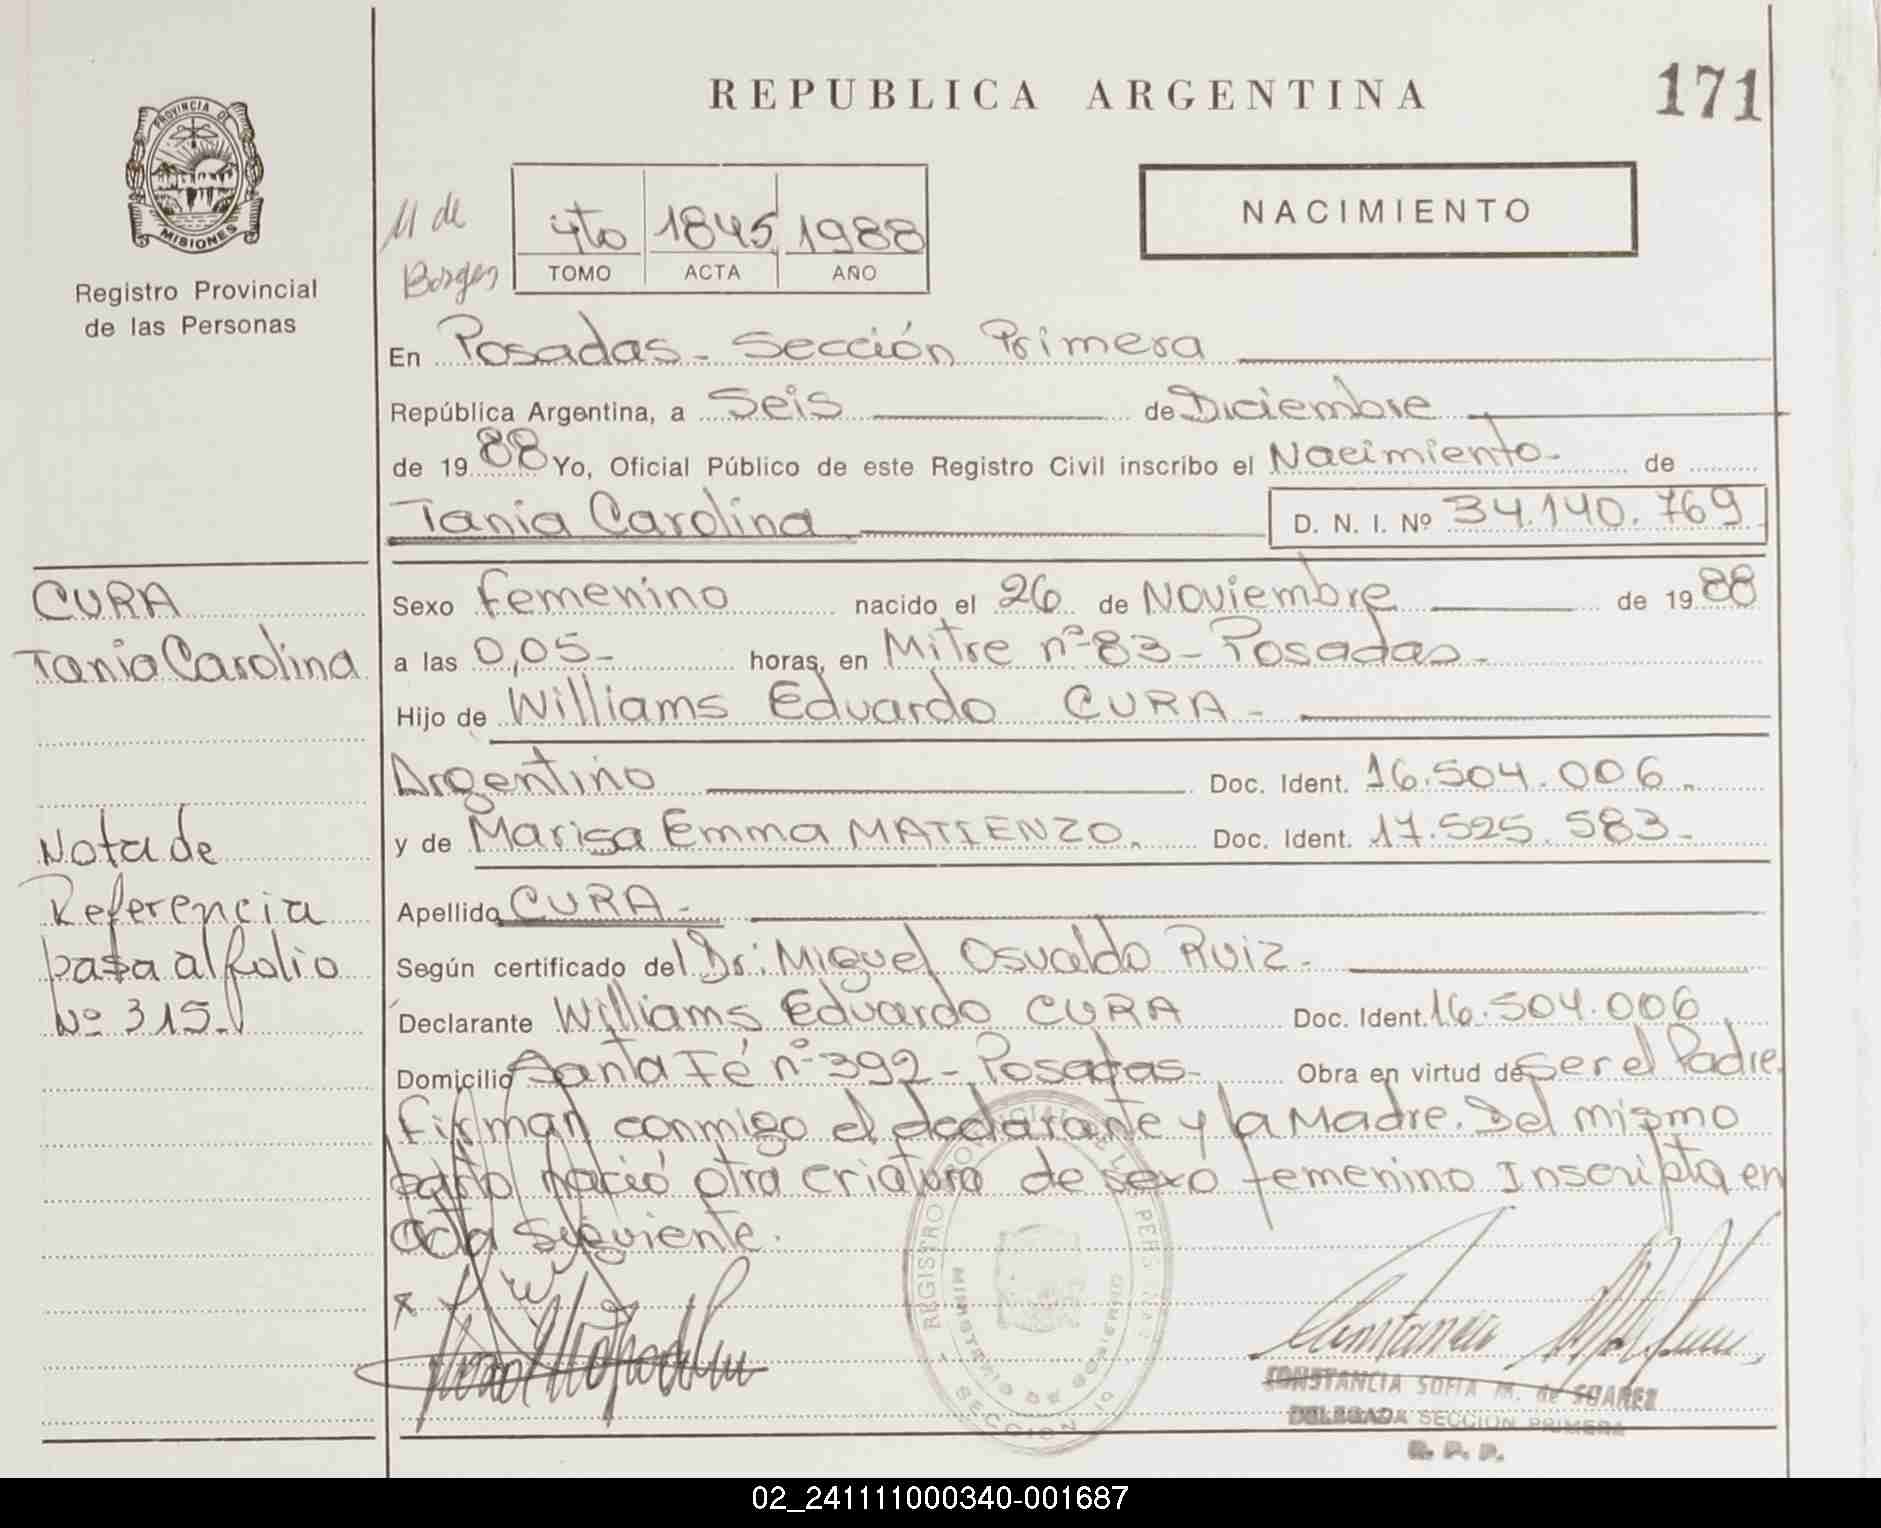 REPUBLICA ARGENTINA
171
PROVINCIA DE
MISIONES
Registro Provincial
de las Personas
M de
Borges
4to 1845 1988
TOMO ACTA AÑO
NACIMIENTO
En Posadas - Sección Primera
República Argentina, a Seis de Diciembre
de 1988 Yo, Oficial Público de este Registro Civil inscribo el Nacimiento - de
Tania Carolina D. N. I. Nº 34.140.769
CURA
Tania Carolina
Sexo femenino nacido el 26 de Noviembre de 1988
a las 0,05 - horas, en Mitre nº 83 - Posadas -
Hijo de Williams Eduardo CURA -
Argentino Doc. Ident. 16.504.006 -
y de Marisa Emma MATIENZO. Doc. Ident. 17.525.583 -
Apellido CURA -
Según certificado del Dr: Miguel Osvaldo Ruiz -
Declarante Williams Eduardo CURA Doc. Ident. 16.504.006
Domicilio Santa Fé nº 392 - Posadas - Obra en virtud de ser el Padre.
Firman conmigo el declarante y la Madre. Del mismo
parto nació otra criatura de sexo femenino Inscripta en
acta siguiente.
Nota de
Referencia
pasa al folio
Nº 315.
REGISTRO PROVINCIAL DE LAS PERSONAS
MINISTERIO DE GOBIERNO
SECCION 1º
CONSTANCIA SOFIA M. de SUAREZ
DELEGADA SECCION PRIMERA
R. P. P.
02_241111000340-001687